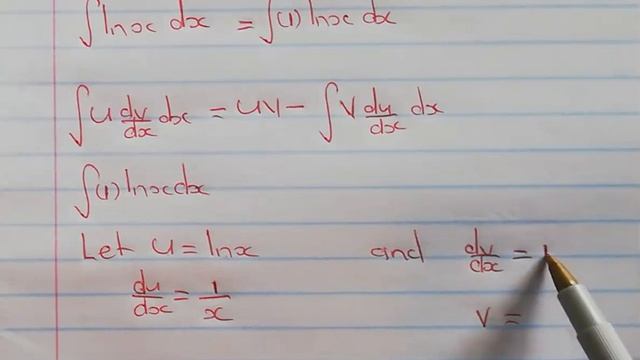 ∫ lnx dx = ∫(1) lnx dx
∫ u dv/dx dx = uv − ∫ v du/dx dx
∫(1) lnx dx
Let u = lnx and dv/dx = 1
du/dx = 1/x v =